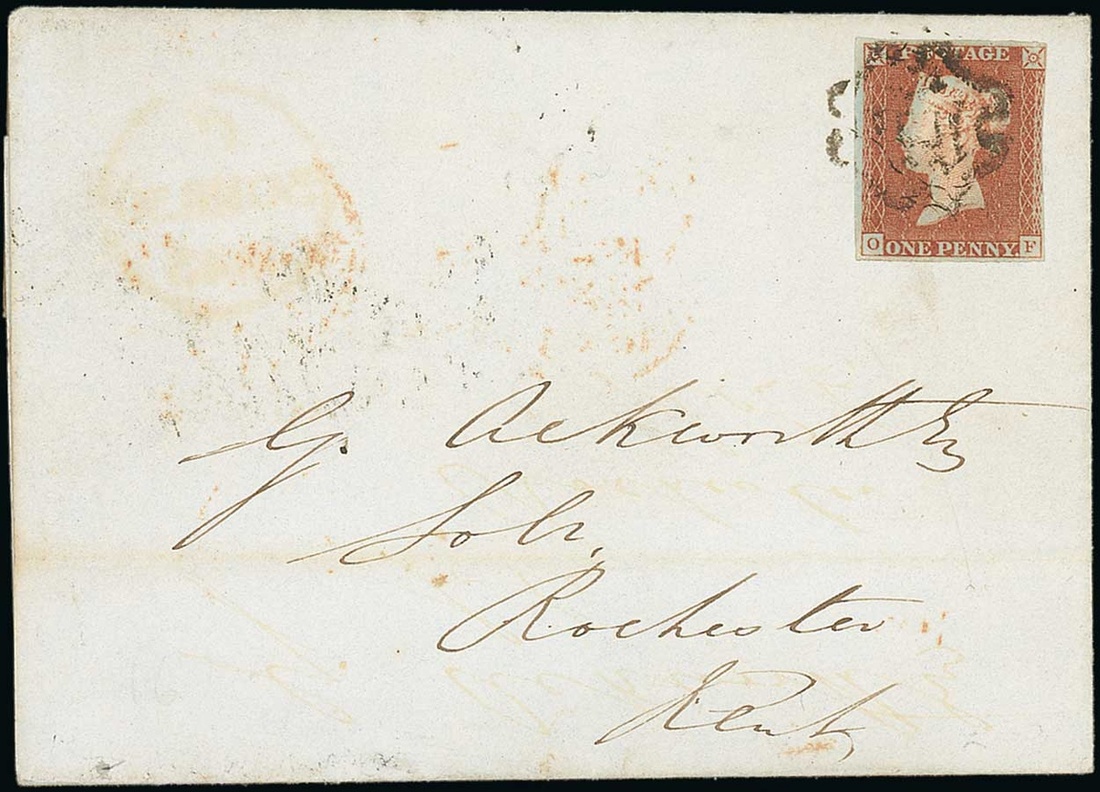 POSTAGE
O ONE PENNY F
G. Ackworth Esq
Solr.
Rochester
Kent